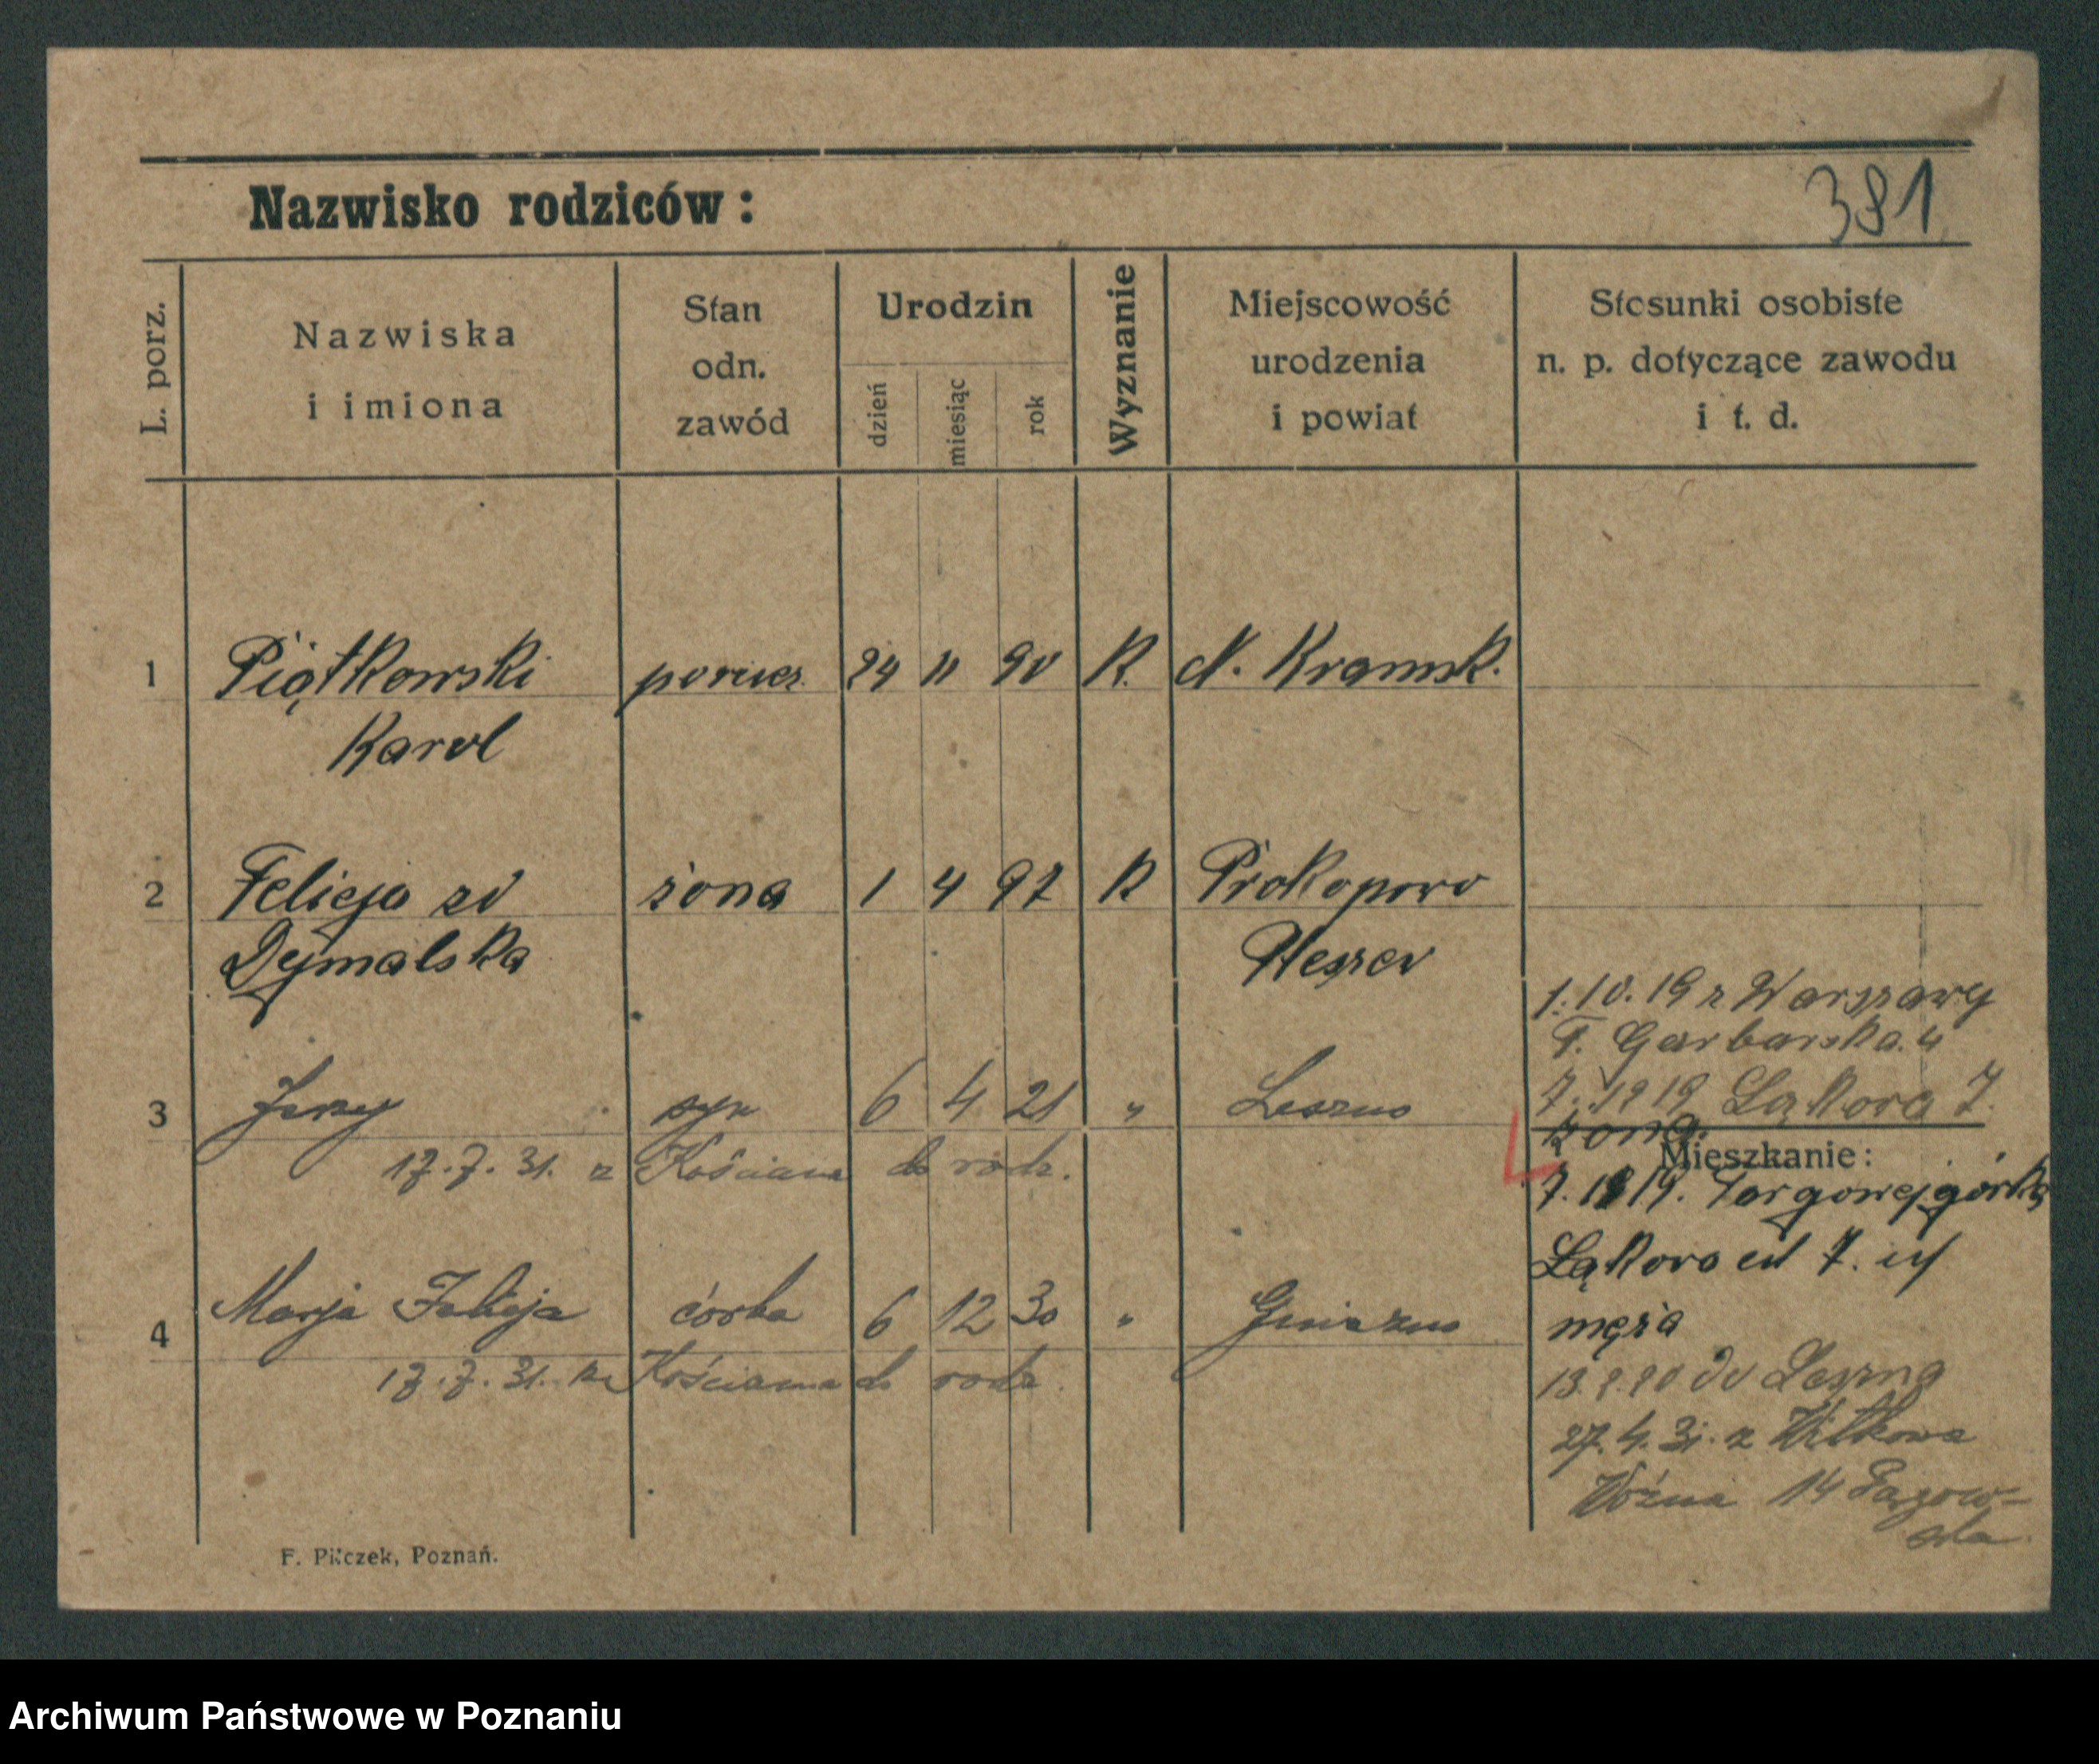 381
Nazwisko rodziców:
L. porz.
Nazwiska
i imiona
Stan
odn.
zawód
Urodzin
dzień
miesiąc
rok
Wyznanie
Miejscowość
urodzenia
i powiat
Stosunki osobiste
n. p. dotyczące zawodu
i t. d.
1 Piątkowski 24 11 90 K. N. Kramsk.
Karol
2 Felicja zd żona 1 4 97 K Prokopowo
Dymalska Pleszew
1.10.19 z Warszawy
Garbarska 4
3 Jerzy syn 6 4 21 " Leszno
7. 1919 Łąkowa 7.
żona
17.7.31. z Kościana do rodz.
Mieszkanie:
7. 1919. Targowej górki
Łąkowa 7.
męża
4 Marja Felicja córka 6 12 30 " Gniezno
17.7.31. z Kościana do rodz.
do Leszna
27.4.31. z Witkowa
Woźna 14
F. Pilczek, Poznań.
Archiwum Państwowe w Poznaniu